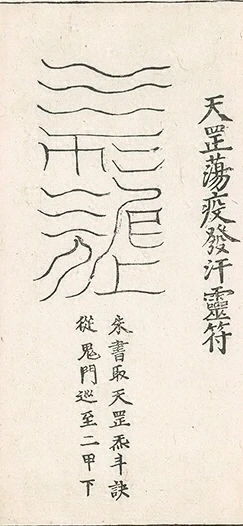 天罡蕩疫發汗靈符
朱書取天罡炁斗訣
從鬼門巡至二甲下